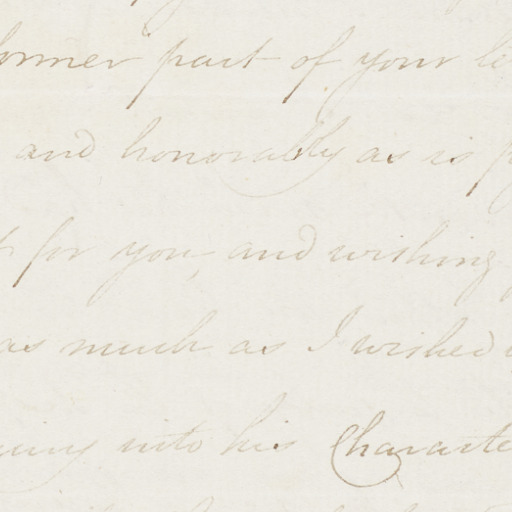 former part of your
and honorably as is
for you, and wishing
as much as I wished
into his Character